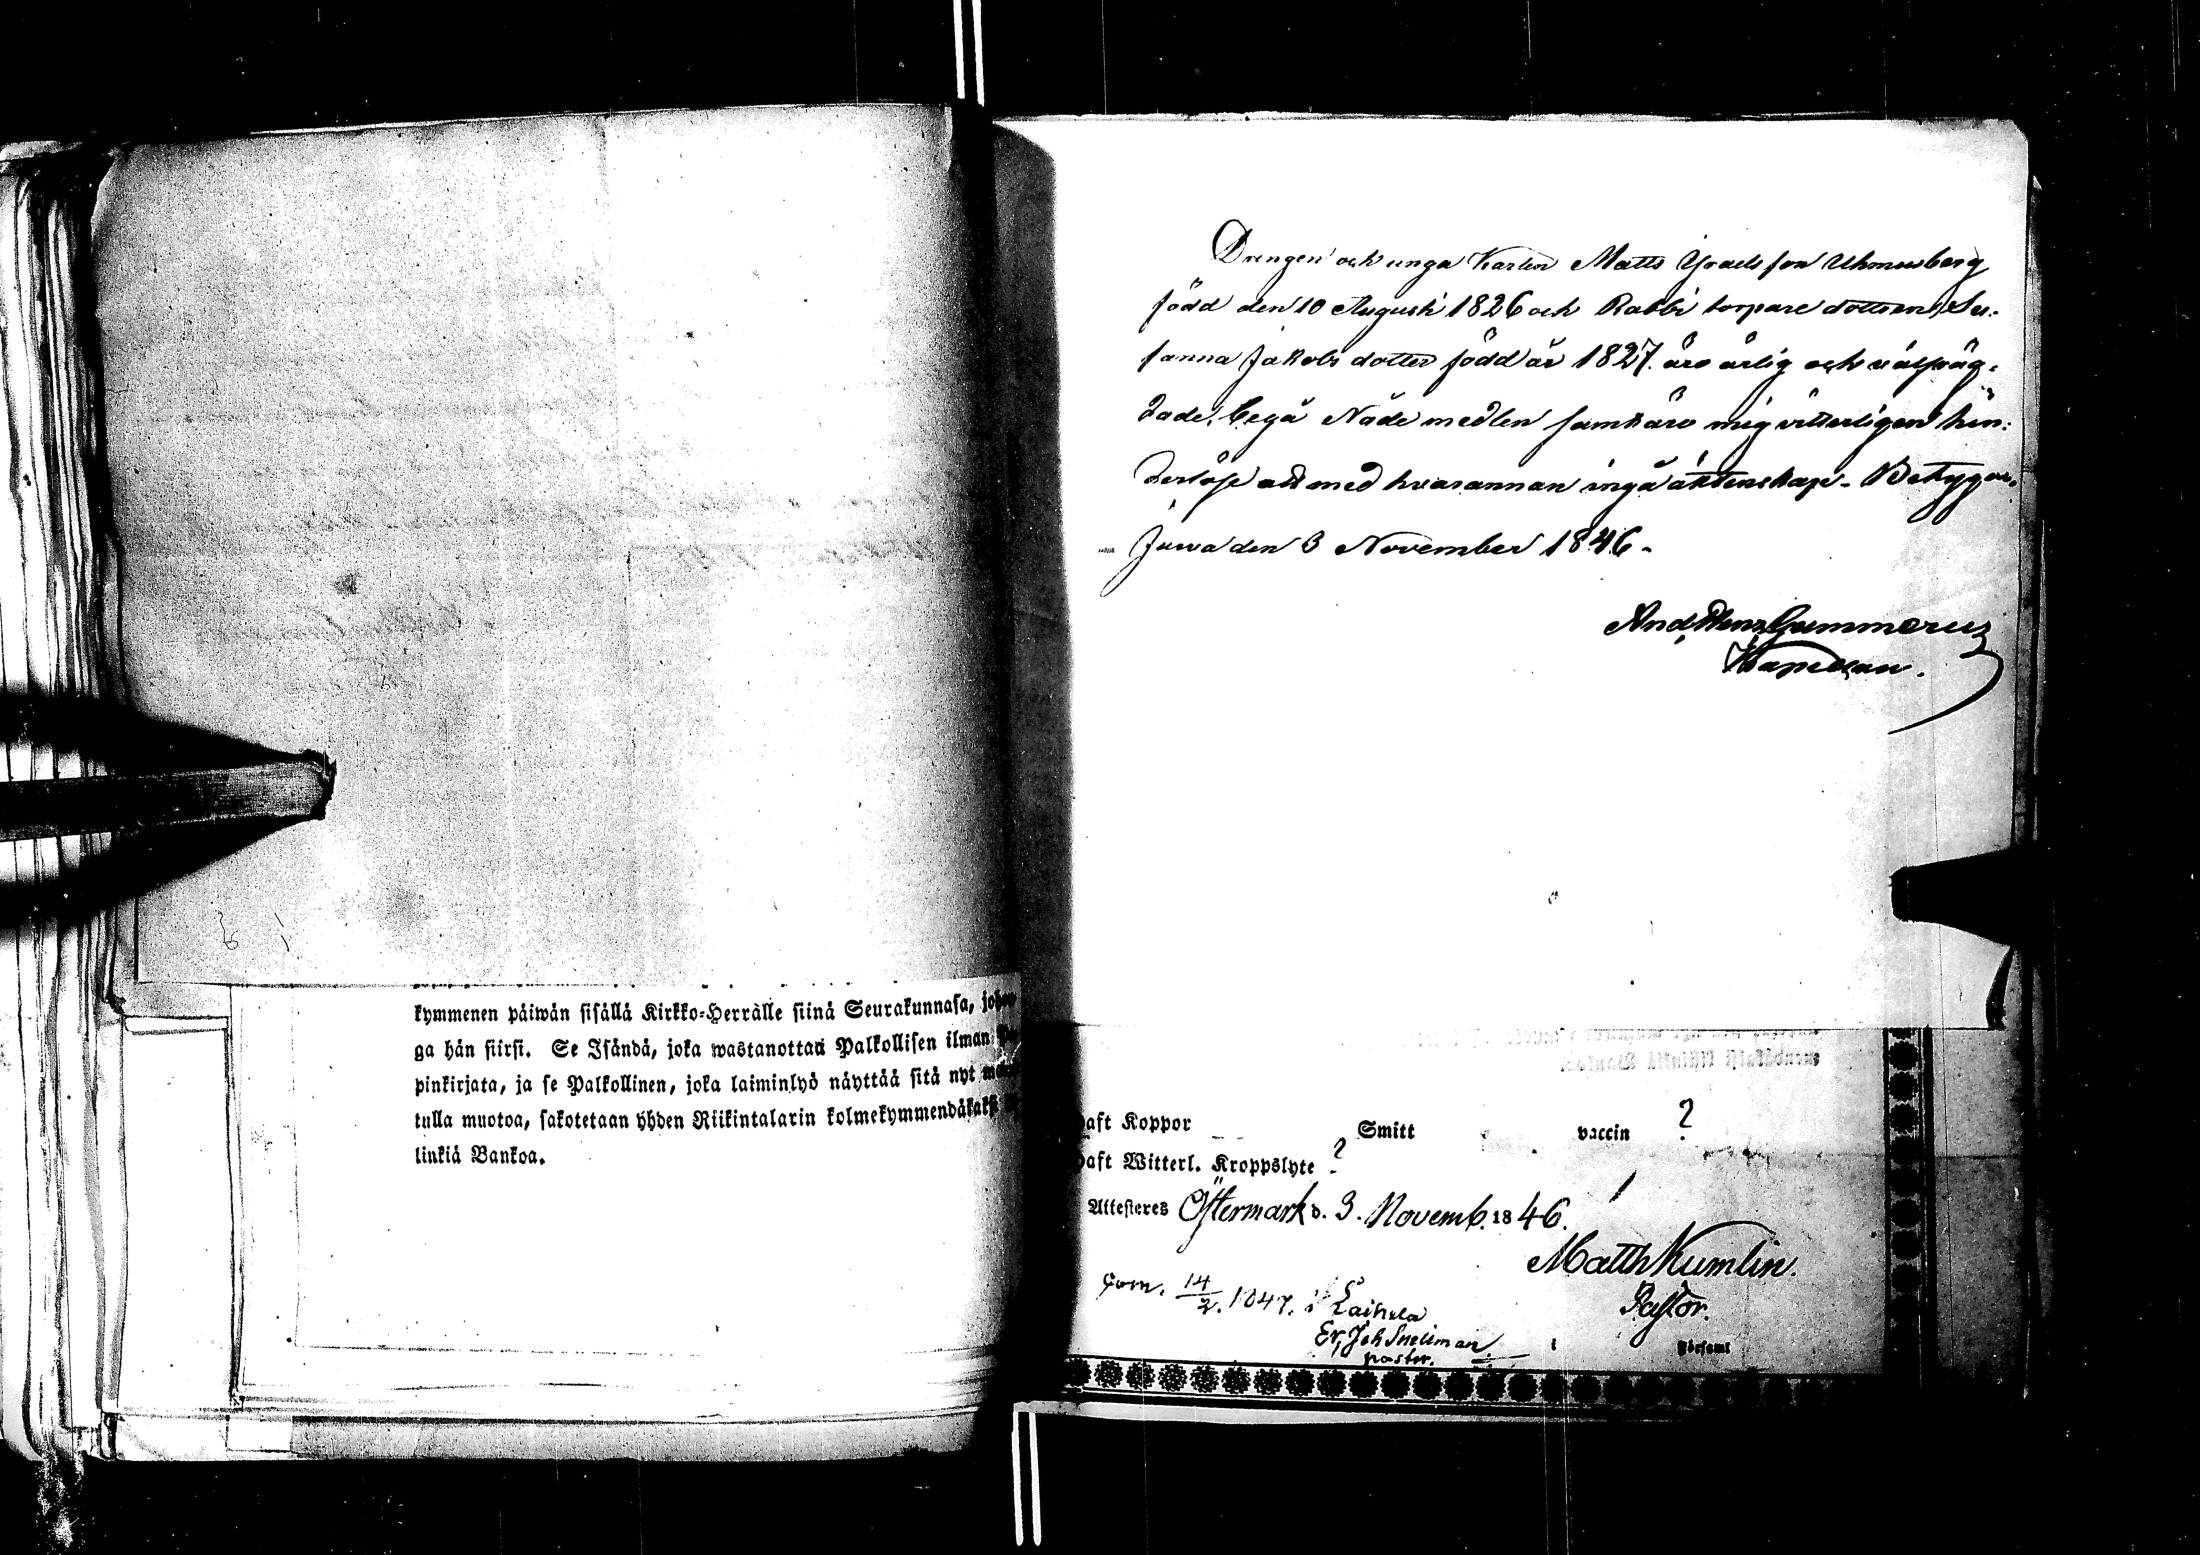 kymmenen päiwän sisällä Kirkko-Herrälle siinä Seurakunnasa,
ga hän siirsi. Se Isändä, joka wastanottaa Palkollisen ilman
pinkirjata, ja se Palkollinen, joka laiminlyö näyttää sitä nyt
tulla muotoa, sakotetaan yhden Riikintalarin kolmekymmendäkaksi
linkiä Bankoa.
Drengen och unga Karlen Matts Israelsson
född den 10 Augusti 1826 och Rabbi torpare dottren Su-
sanna Jakobs dotter född år 1827. äro ärlig och välfräg-
dade, bega Nåde medlen samt äro mig vitterligen hin-
derlöse att med hvarannan ingå äktenskap. Betygar,
Jurva den 3 November 1846.
Gummerus
Kapellan.
haft Koppor Smitt vaccin ?
haft Witterl. Kroppslyte ?
Attesteres Östermark d. 3. Novemb. 1846.
Matth Kumlin.
Pastor.
14/2. 1847. i Laihela
Er. Joh Snellman
pastor.
Församl